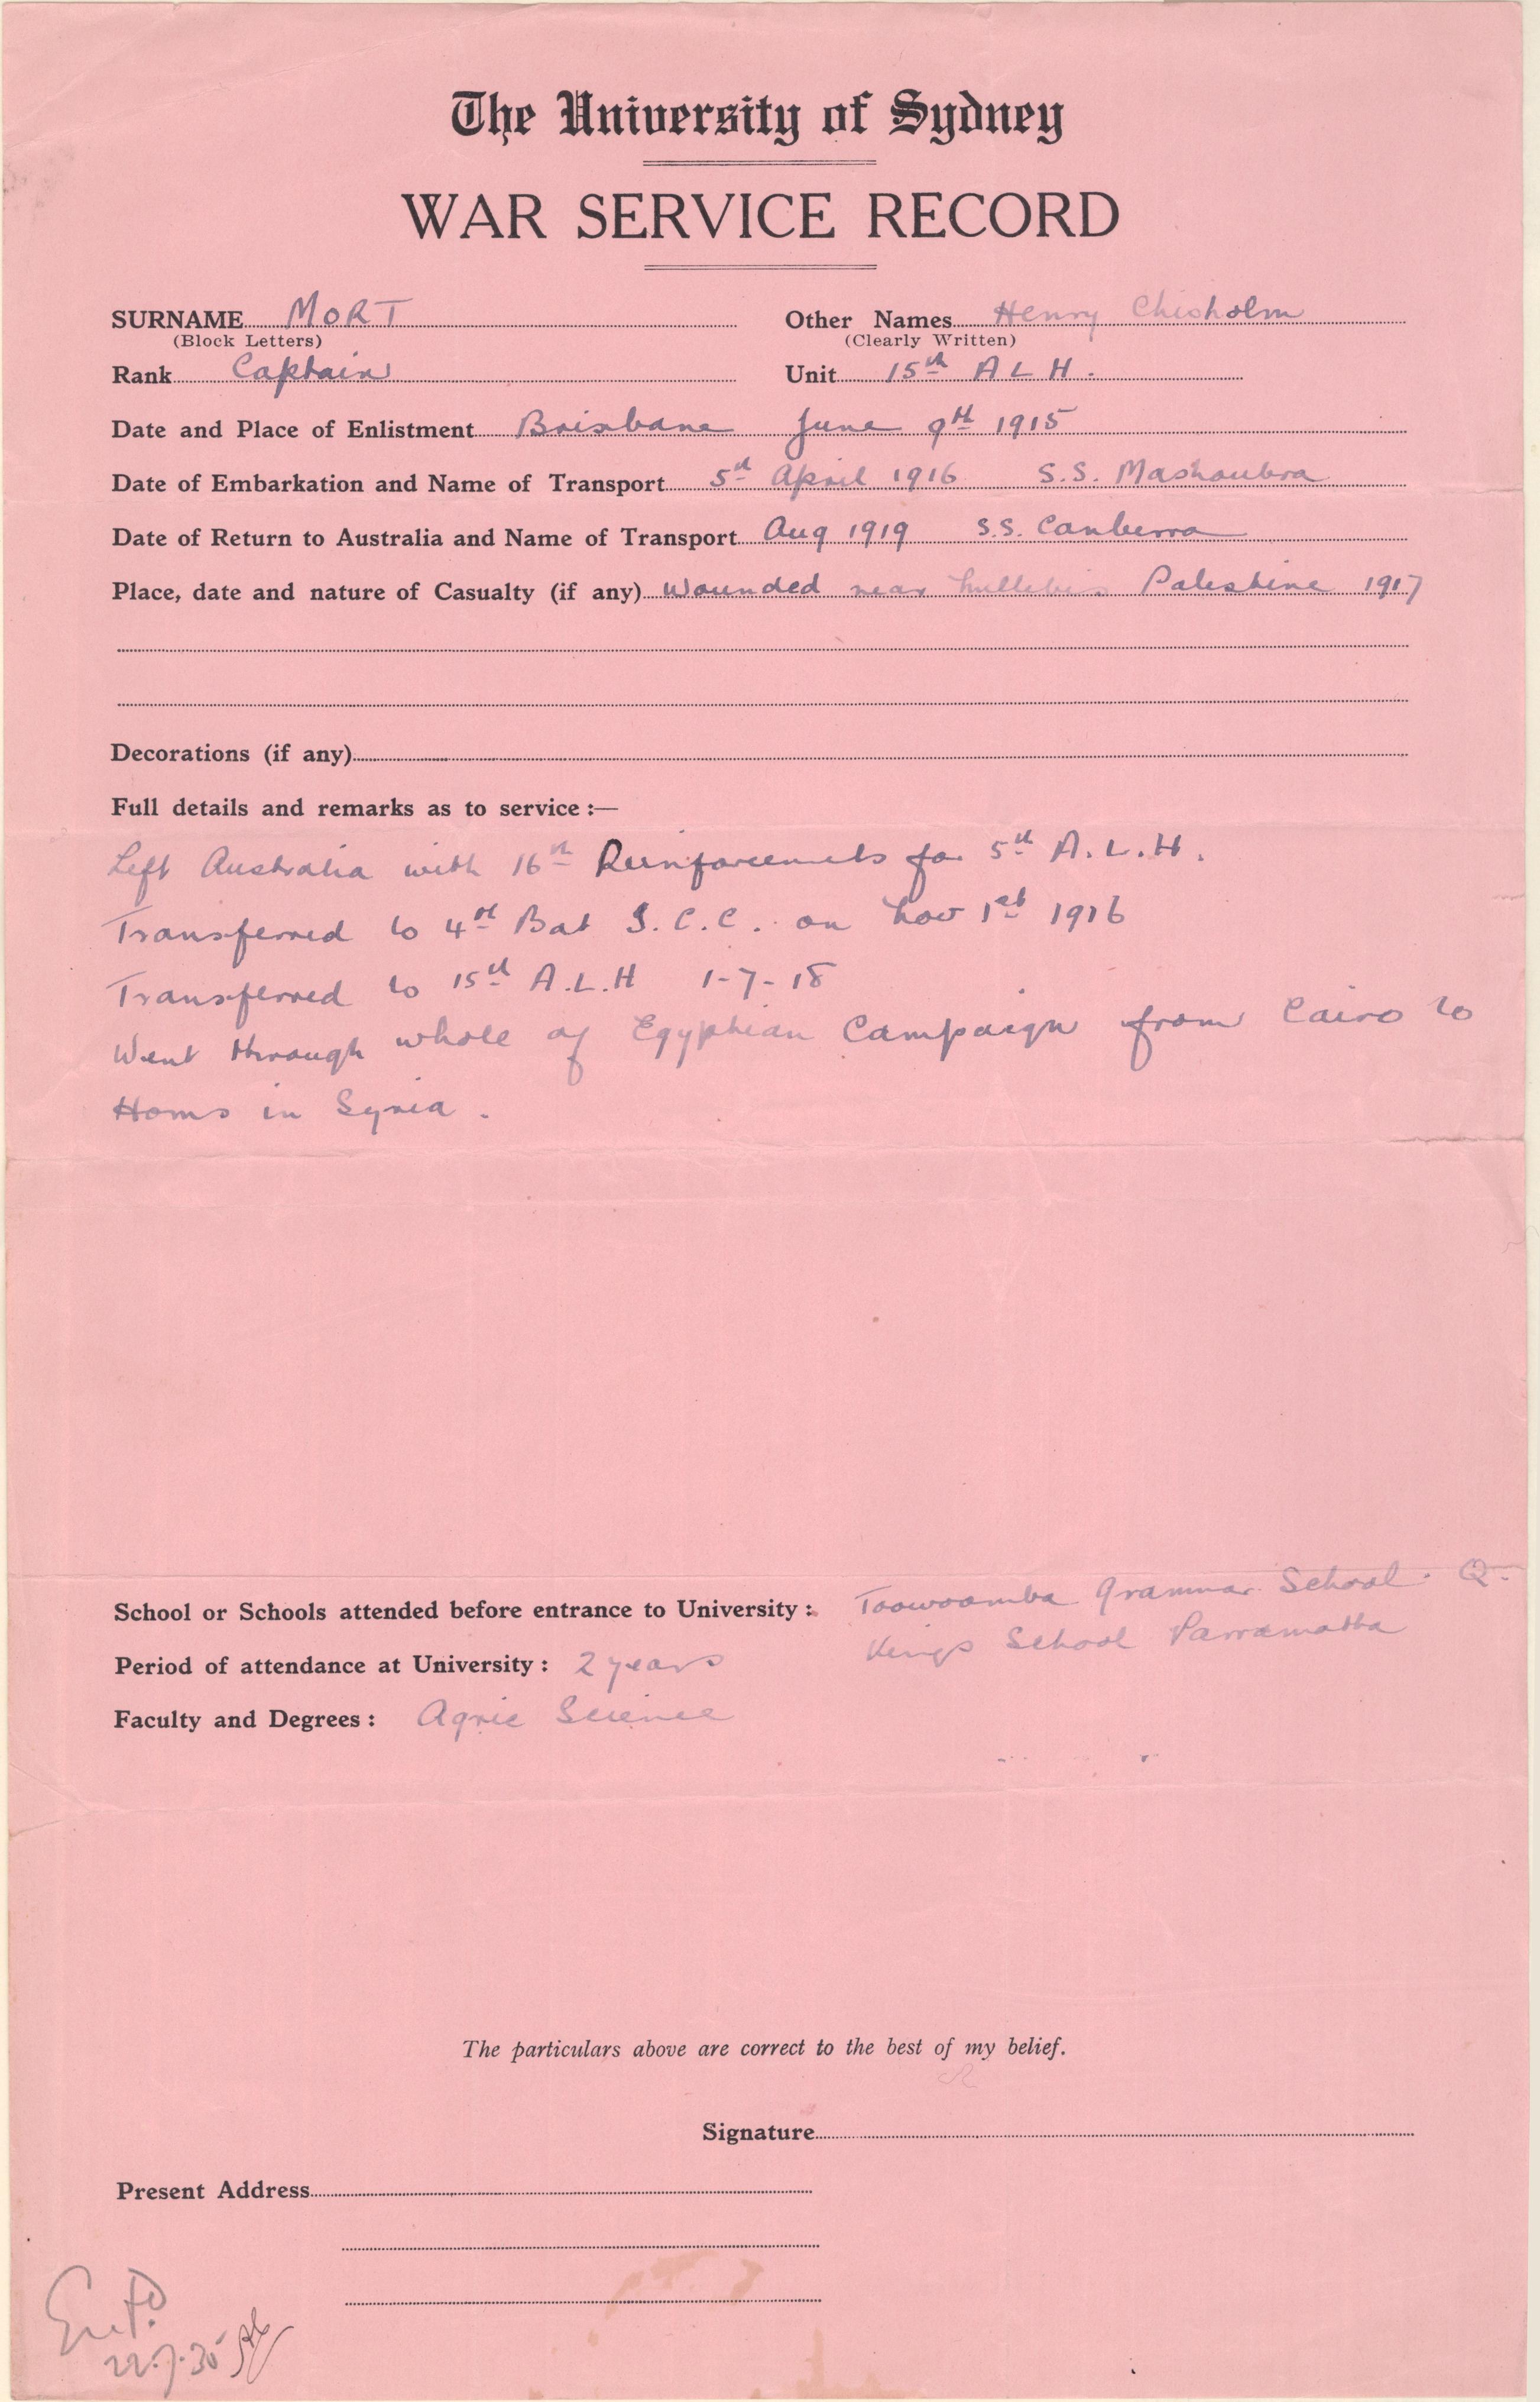 The University of Sydney
WAR SERVICE RECORD
SURNAME MORT Other Names Henry Chisholm
(Block Letters) (Clearly Written)
Rank Captain Unit 15th A L H.
Date and Place of Enlistment Brisbane June 9th 1915
Date of Embarkation and Name of Transport 5th April 1916 S.S. Mashoubra
Date of Return to Australia and Name of Transport Aug 1919 S.S. Canberra
Place, date and nature of Casualty (if any) Wounded near Palestine 1917
Decorations (if any)
Full details and remarks as to service :—
Left Australia with 16th Reinforcements for 5th A.L.H.
Transferred to 4th Bat I.C.C. on Nov 1st 1916
Transferred to 15th A.L.H 1-7-18
Went through whole of Egyptian Campaign from Cairo to
Homs in Syria.
School or Schools attended before entrance to University : Toowoomba Grammar School. Q.
Kings School Parramatta
Period of attendance at University : 2 years
Faculty and Degrees : Agric Science
The particulars above are correct to the best of my belief.
Signature
Present Address